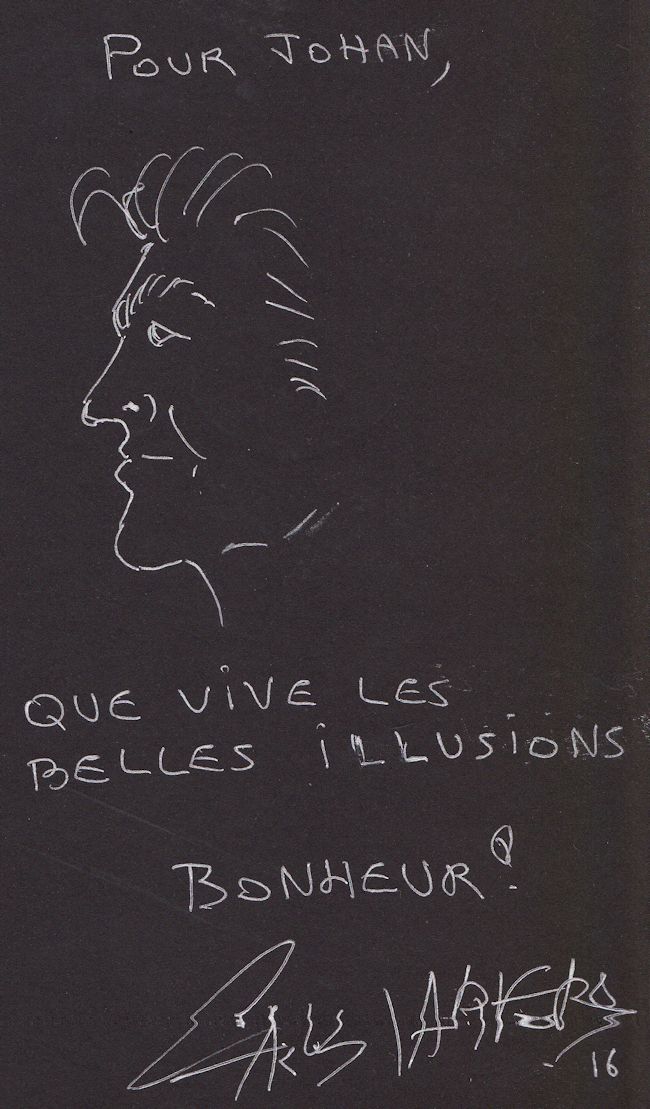 POUR JOHAN,
QUE VIVE LES
BELLES ILLUSIONS
BONHEUR!
16